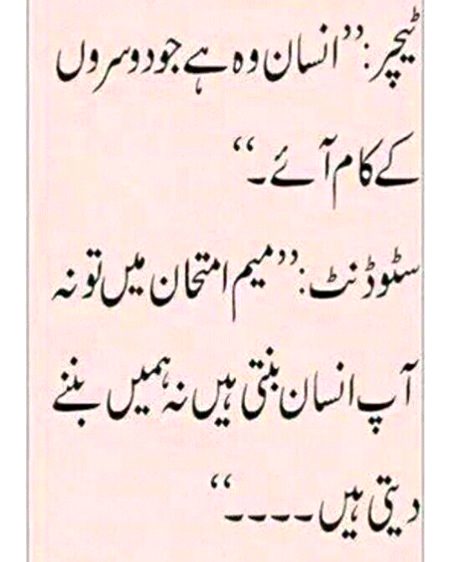 ٹیچر:”انسان وہ ہے جو دوسروں
کے کام آئے۔“
سٹوڈنٹ:”میم امتحان میں تو نہ
آپ انسان بنتی ہیں نہ ہمیں بننے
دیتی ہیں۔۔۔۔“